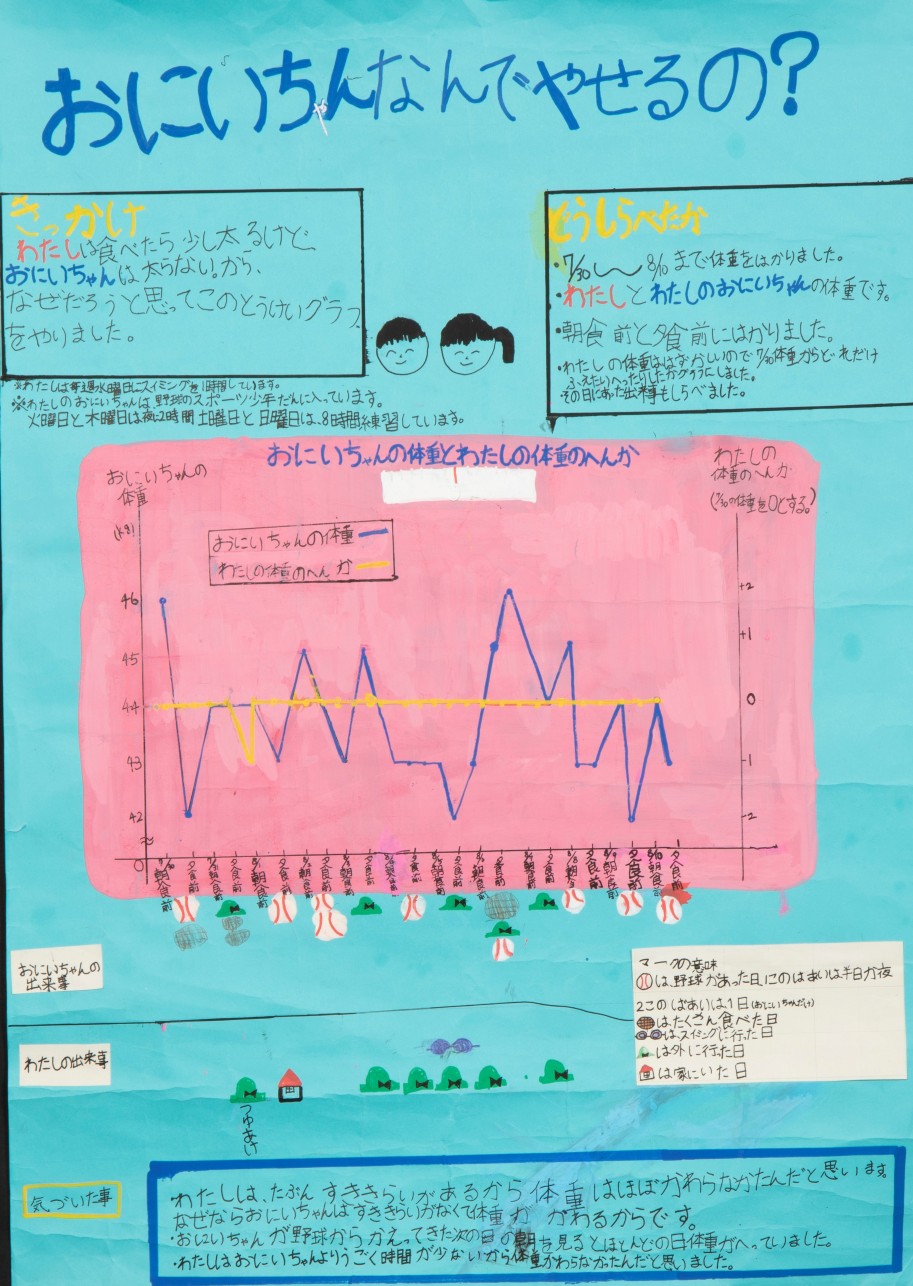 おにいちんなんでやせるの?
きっかけ
わたしは食べたら少し太るけど、
おにいちゃんは太らない。から、
なぜだろうと思ってこのとうけいグラフ
をやりました。
※わたしは毎週水曜日にスイミングを1時間しています。
※わたしのおにいちゃんは野球のスポーツ少年だんに入っています。
火曜日と木曜日は夜2時間土曜日と日曜日は、8時間練習しています。
どうしらべたか
・7/30〜8/10まで体重をはかりました。
・わたしとわたしのおにいちゃんの体重です。
・朝食前と夕食前にはかりました。
・わたしの体重ははずかしいので7/30体重からどれだけ
ふえたりへったりしたかグラフにしました。
その日にあった出来事もしらべました。
おにいちゃんの体重とわたしの体重のへんか
おにいちゃんの
体重
(kg)
わたしの
体重のへんか
(7/30の体重を0とする。)
おにいちゃんの体重
わたしの体重のへんか
46
45
44
43
42
0
+2
+1
0
-1
-2
7/30朝食前
夕食前
7/31朝食前
夕食前
8/1朝食前
夕食前
8/2朝食前
夕食前
朝食前
夕食前
夕食前
朝食前
夕食前
朝食前
夕食前
朝食前
夕食前
8/8朝食前
夕食前
8/9朝食前
夕食前
8/10朝食前
夕食前
おにいちゃんの
出来事
マークの意味
は、野球があった日、1このはあいは半日か夜
2このばあいは1日(おにいちゃんだけ)
はたくさん食べた日
はスイミングに行った日
は外に行った日
は家にいた日
わたしの出来事
つゆあけ
気づいた事
・わたしは、たぶんすききらいがあるから体重はほぼかわらなかたんだと思います。
なぜならおにいちゃんはすききらいがなくて体重がかわるからです。
・おにいちゃんが野球からかえってきた次の日の朝を見るとほとんどの日体重がへっていました。
・わたしはおにいちゃんよりうごく時間が少ないから体重がかわらなかったんだと思いました。